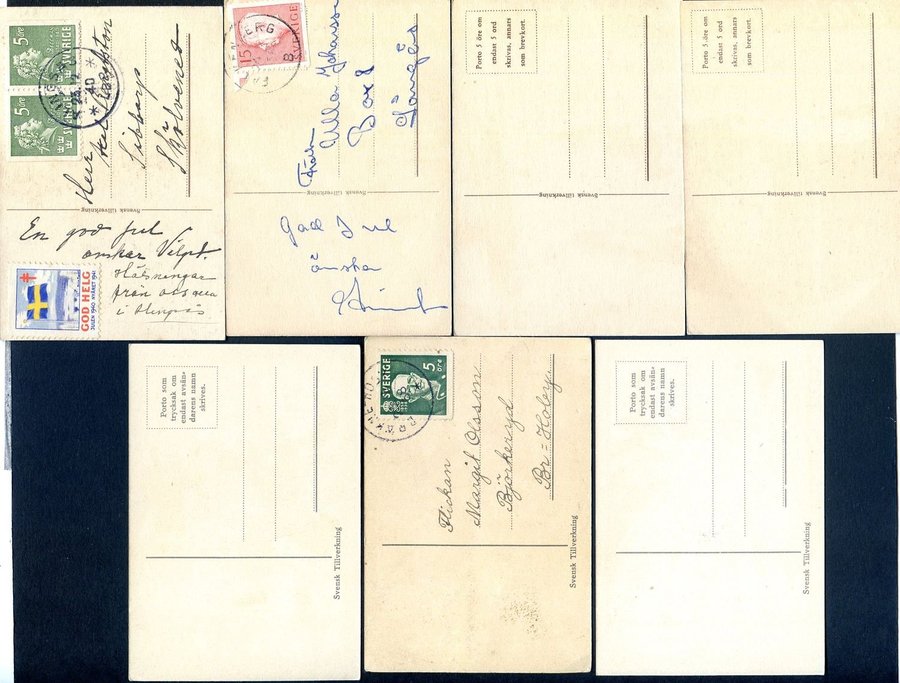 5 öre
SVERIGE
5 öre
SVERIGE
23.12
40
Herr
Sibbarp
Skölvened
Svensk tillverkning
En god jul
önskar
Hälsningar
från oss alla
i
GOD HELG
JULEN 1940 NYÅRET 1941
15
SVERIGE
BERG
8
Fröken
Ulla Johansson
Box 8
Svensk tillverkning
God Jul
önskar
Porto 5 öre om
endast 5 ord
skrivas, annars
som brevkort.
Svensk tillverkning
Porto 5 öre om
endast 5 ord
skrivas, annars
som brevkort.
Svensk tillverkning
Porto som
trycksak om
endast avsän-
darens namn
skrives.
Svensk Tillverkning
SVERIGE
5
öre
Flickan
Margit Olsson
Björkeryd
Br = Hoby.
Svensk Tillverkning
Porto som
trycksak om
endast avsän-
darens namn
skrives.
Svensk Tillverkning